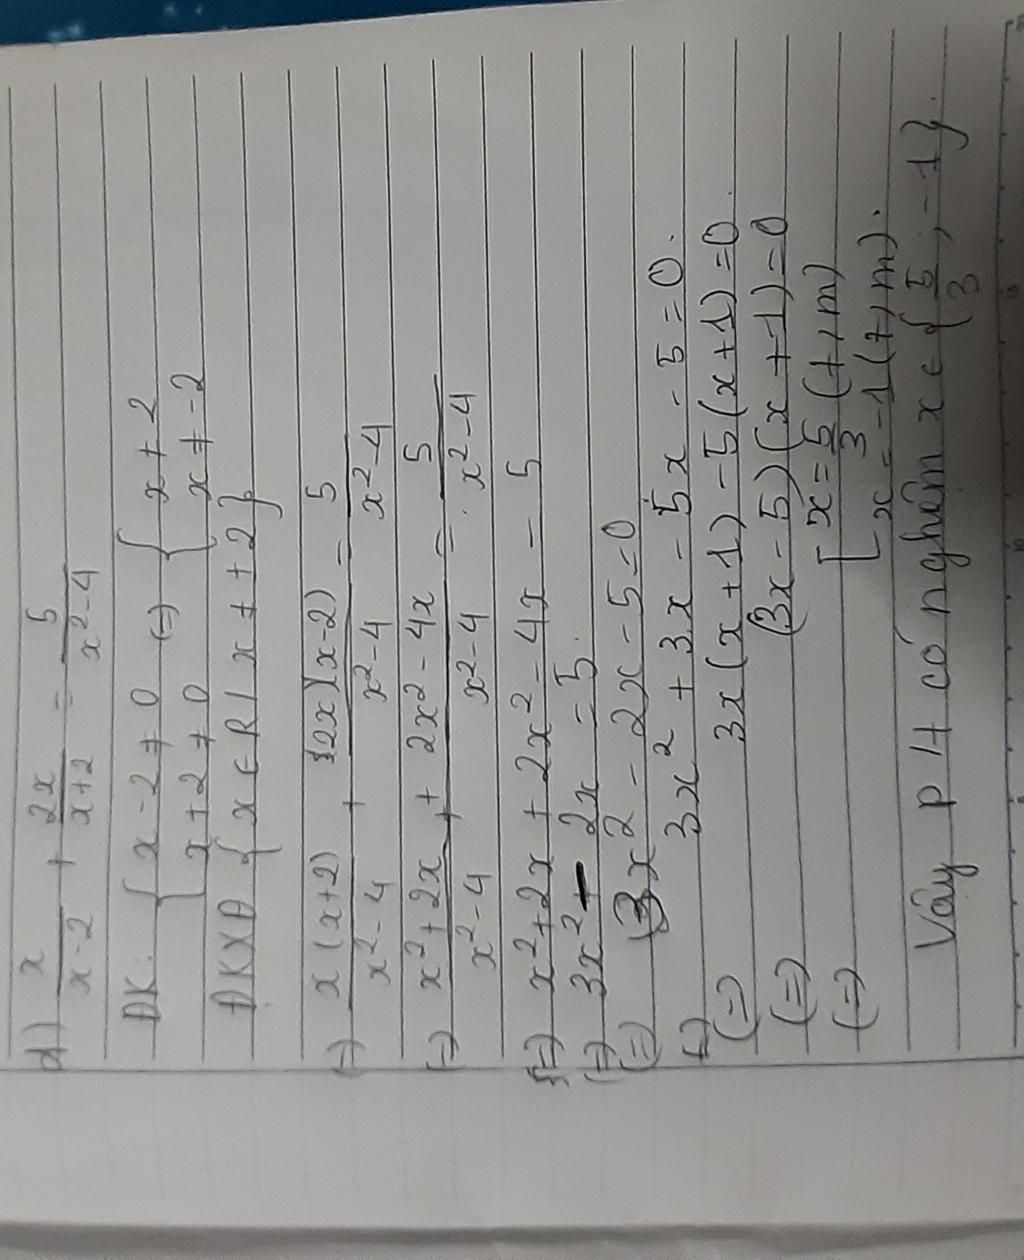 d) x/(x-2) + 2x/(x+2) = 5/(x²-4)
ĐK: { x-2 ≠ 0 (=) { x ≠ 2
x+2 ≠ 0 x ≠ -2
ĐKXĐ { x ∈ R / x ≠ ±2 }
(=) x(x+2)/(x²-4) + (2x)(x-2)/(x²-4) = 5/(x²-4)
(=) (x²+2x)/(x²-4) + (2x²-4x)/(x²-4) = 5/(x²-4)
(=) x²+2x + 2x²-4x = 5
(=) 3x² - 2x = 5
(=) 3x² - 2x - 5 = 0
(=) 3x² + 3x - 5x - 5 = 0.
(=) 3x(x+1) - 5(x+1) = 0.
(=) (3x-5)(x+1) = 0
(=) [ x = 5/3 (t/m)
x = -1 (t/m).
Vậy pt có nghiệm x ∈ { 5/3 ; -1 }.